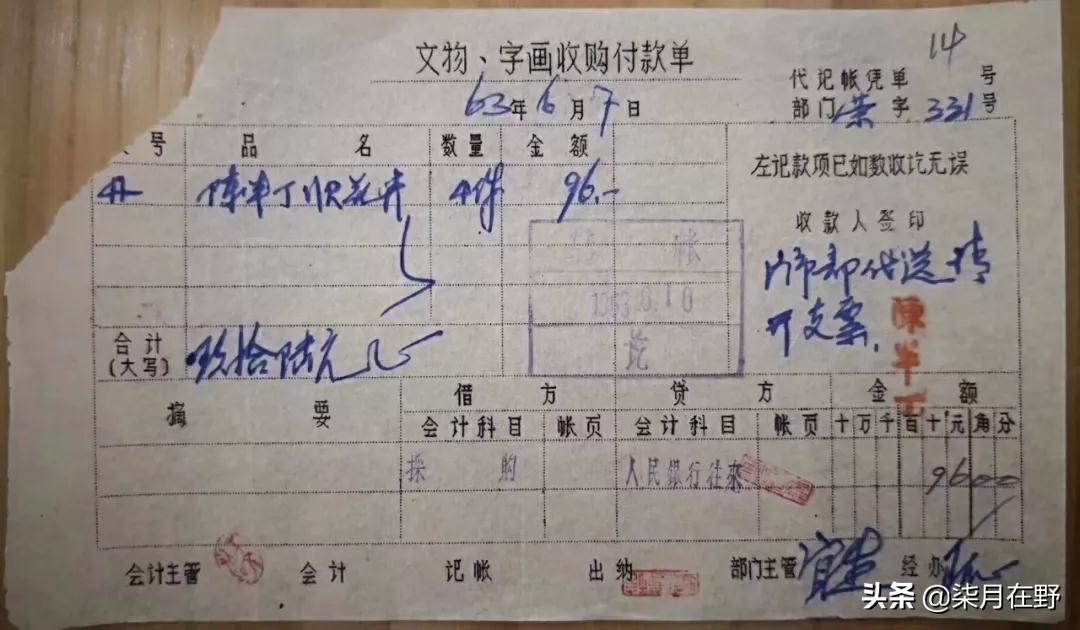 14
文物、字画收购付款单
代记帐凭单 号
63年6月7日
部门 荣 字 331 号
号 品 名 数量 金额
陈半丁 花卉 4件 96.-
左记款项已如数收讫无误
收款人签印
代送请
开支票.
陳半丁
转 帐
1963.6.10
讫
合计
(大写) 玖拾陆元
摘 要 借 方 贷 方 金 额
会计科目 帐页 会计科目 帐页 十万千百十元角分
採 购 人民银行往来 9600
会计主管 会计 记帐 出纳 部门主管 经办
头条 @柒月在野